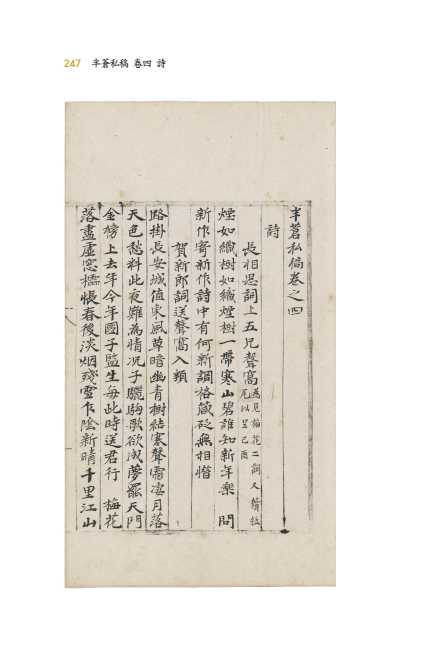 247 半蒼私稿 卷四 詩
半蒼私稿卷之四
詩
長相思詞上五兄聲窩 篤兄梅花二詞又續拉
尾以呈己酉
煙如織樹如織煙樹一帶寒山碧誰知新年樂 問
新作寄新作詩中有何新調格箴砭無相惜
賀新郎詞送聲窩入類
路掛長安城值東風草暗幽青樹結寒聲霜凄月落
天色愁料此夜難為情况子驪駒歌欲成夢罷天門
金榜上去年今年國子監生每此時送君行 梅花
落盡虛窓櫺悵春後淡烟殘雪乍陰新晴千里江山